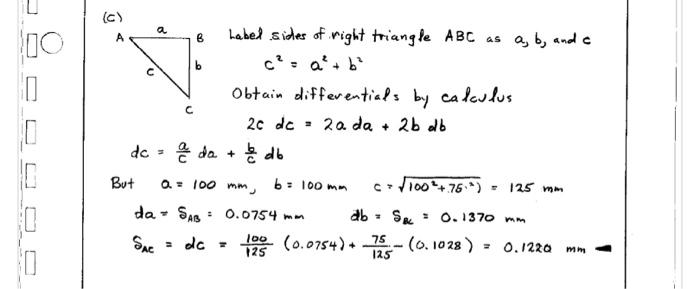 (c)
A a B Label sides of right triangle ABC as a, b, and c
c b c² = a² + b²
C Obtain differentials by calculus
2c dc = 2a da + 2b db
dc = a/c da + b/c db
But a = 100 mm, b = 100 mm c = √(100² + 75²) = 125 mm
da = S_AB = 0.0754 mm db = S_BC = 0.1370 mm
S_AC = dc = 100/125 (0.0754) + 75/125 - (0.1028) = 0.1220 mm